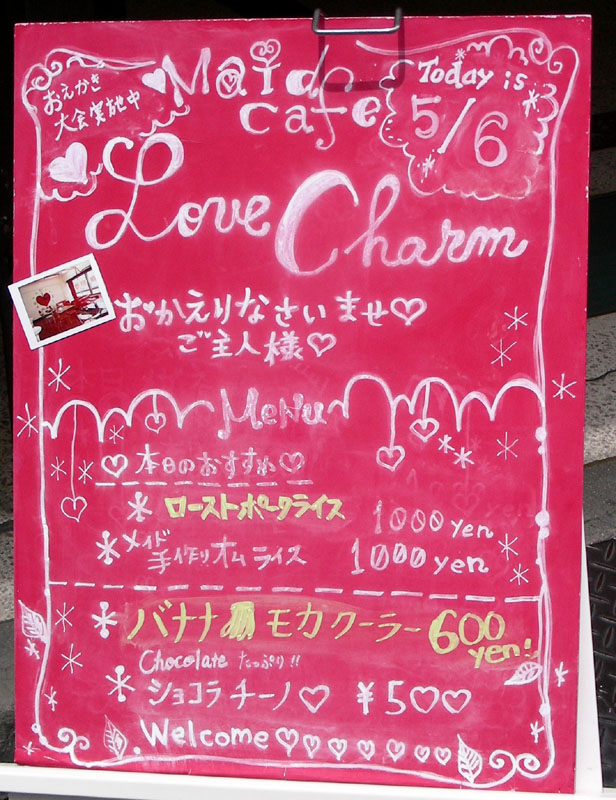 おえかき
大会実施中
Maid
cafe
Today is
5/6
Love Charm
おかえりなさいませ♡
ご主人様♡
Menu
♡本日のおすすめ♡
ローストポークライス 1000yen
メイド
手作りオムライス 1000yen
バナナモカクーラー 600
yen!
Chocolate たっぷり!!
ショコラチーノ♡ ¥5♡♡
Welcome♡♡♡♡♡♡♡